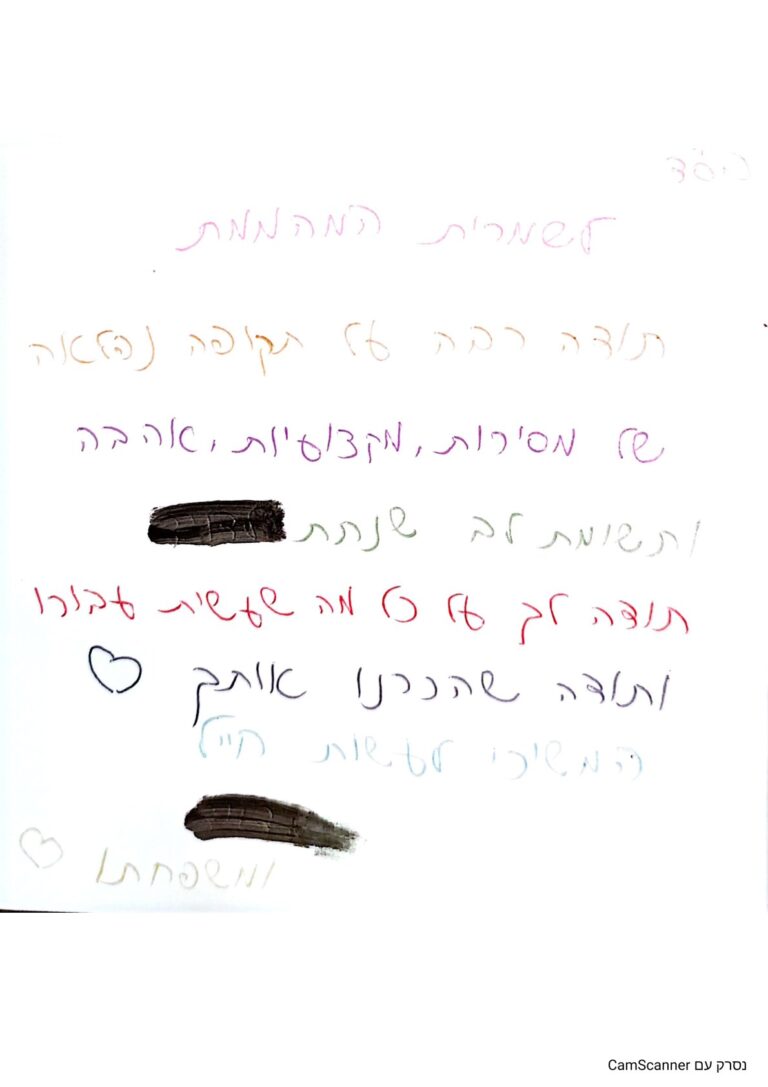 בס"ד
לשמרית המהממת
תודה רבה על תקופה נפלאה
של מסירות, מקצועיות, אהבה
ותשומת לב שנתת
תודה לך על כל מה שעשית עבורו
ותודה שהכרנו אותך
המשיכי לעשות חייל
ומשפחתו
נסרק עם CamScanner